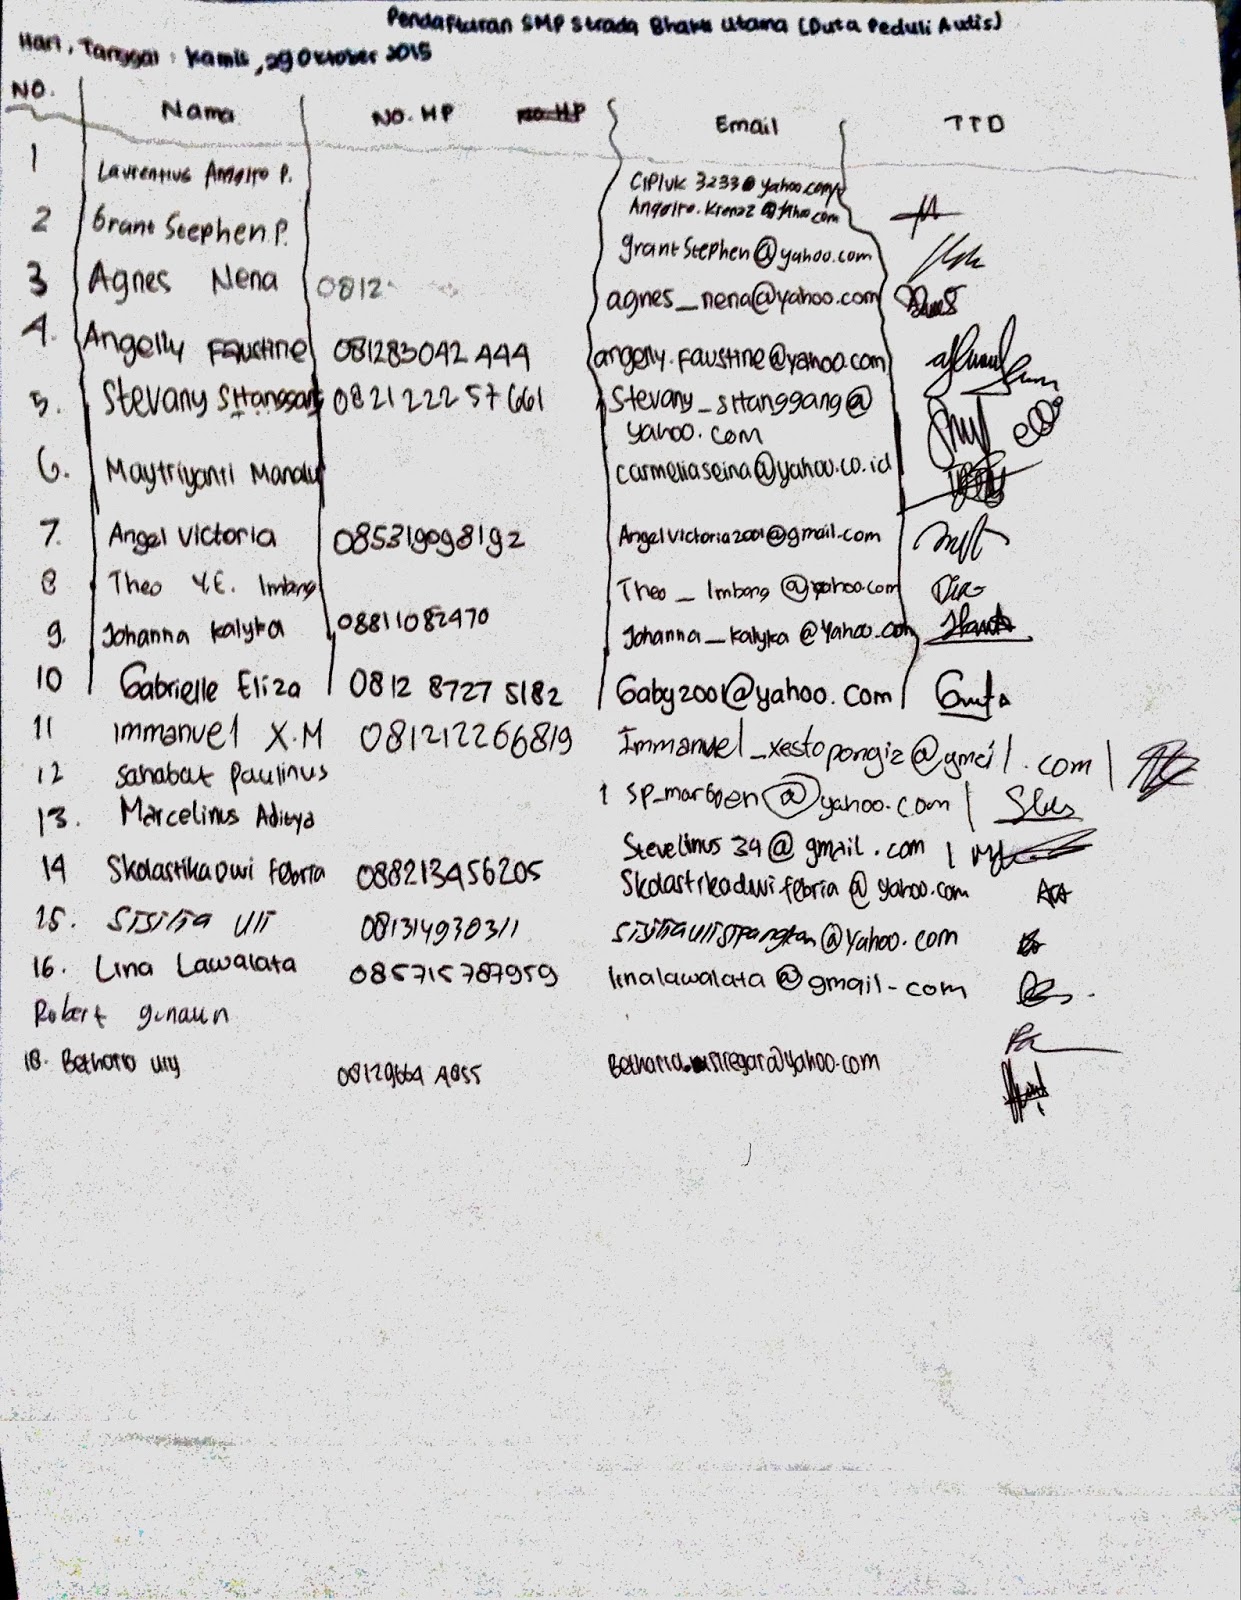 Pendaftaran SMP Strada Bhakti Utama (Duta Peduli Autis)
Hari, Tanggal : Kamis, 29 Oktober 2015
NO. Nama NO. HP Email TTD
1 Laurentius P. Cipluk 3233@yahoo.com
2 Grant Stephen.P. grantStephen@yahoo.com
3 Agnes Nena 0812 agnes_nena@yahoo.com
4. Angelly Faustine 081283042444 angelly.faustine@yahoo.com
5. Stevany Sitanggang 082122257661 Stevany_sitanggang@
yahoo.com
6. Maytriyanti Manalu carmeliaseina@yahoo.co.id
7. Angel Victoria 085319098192 Angelvictoria2001@gmail.com
8 Theo Y.E. Imbang Theo_Imbang@yahoo.com
9. Johanna Kalyka 08811082470 Johanna_kalyka@yahoo.com
10 Gabrielle Eliza 0812 8727 5182 Gaby2001@yahoo.com
11 Immanuel X.M 081212266819 Immanuel_xestopongiz@gmail.com
12 Sahabat Paulinus @yahoo.com
13. Marcelinus Aditya Stevelinus 39@gmail.com
14 Skolastika Dwi Febria 088213456205 Skolastikadwifebria@yahoo.com
15. Sisilia Uli 081314930311 @yahoo.com
16. Lina Lawalata 085715787959 linalawalata@gmail-com
Robert
18.